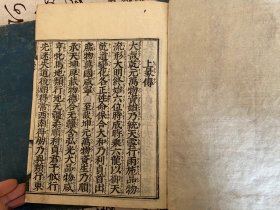 上彖傳
大哉乾元萬物資始乃統天雲行雨施品物
流形大明終始六位時成時乘六龍以御天
乾道變化各正性命保合大和乃利貞首出
庶物萬國咸寧 至哉坤元萬物資生乃順
承天坤厚載物德合无疆含弘光大品物咸
亨牝馬地類行地无疆柔順利貞君子攸行
先迷失道後順得常西南得朋乃與類行東